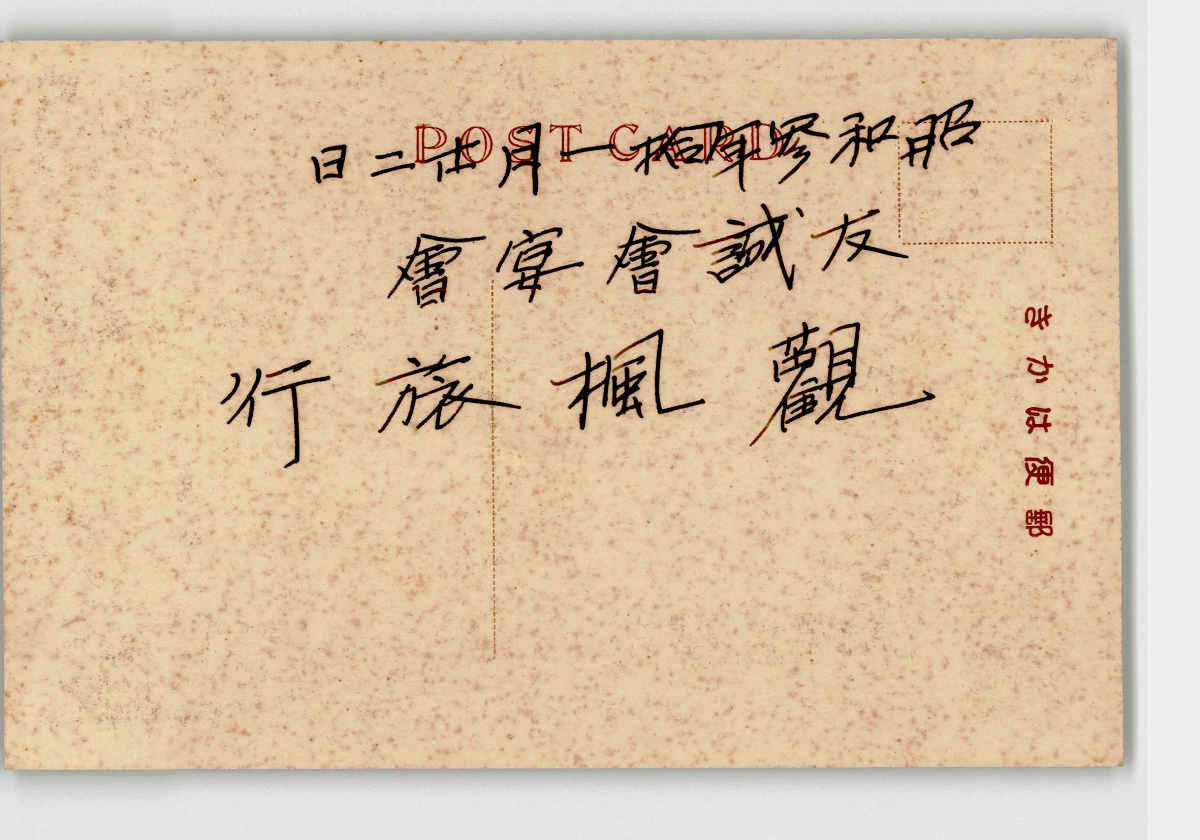 POST CARD
昭和參年拾一月廿二日
友誠會宴會
觀楓旅行
郵便はかき